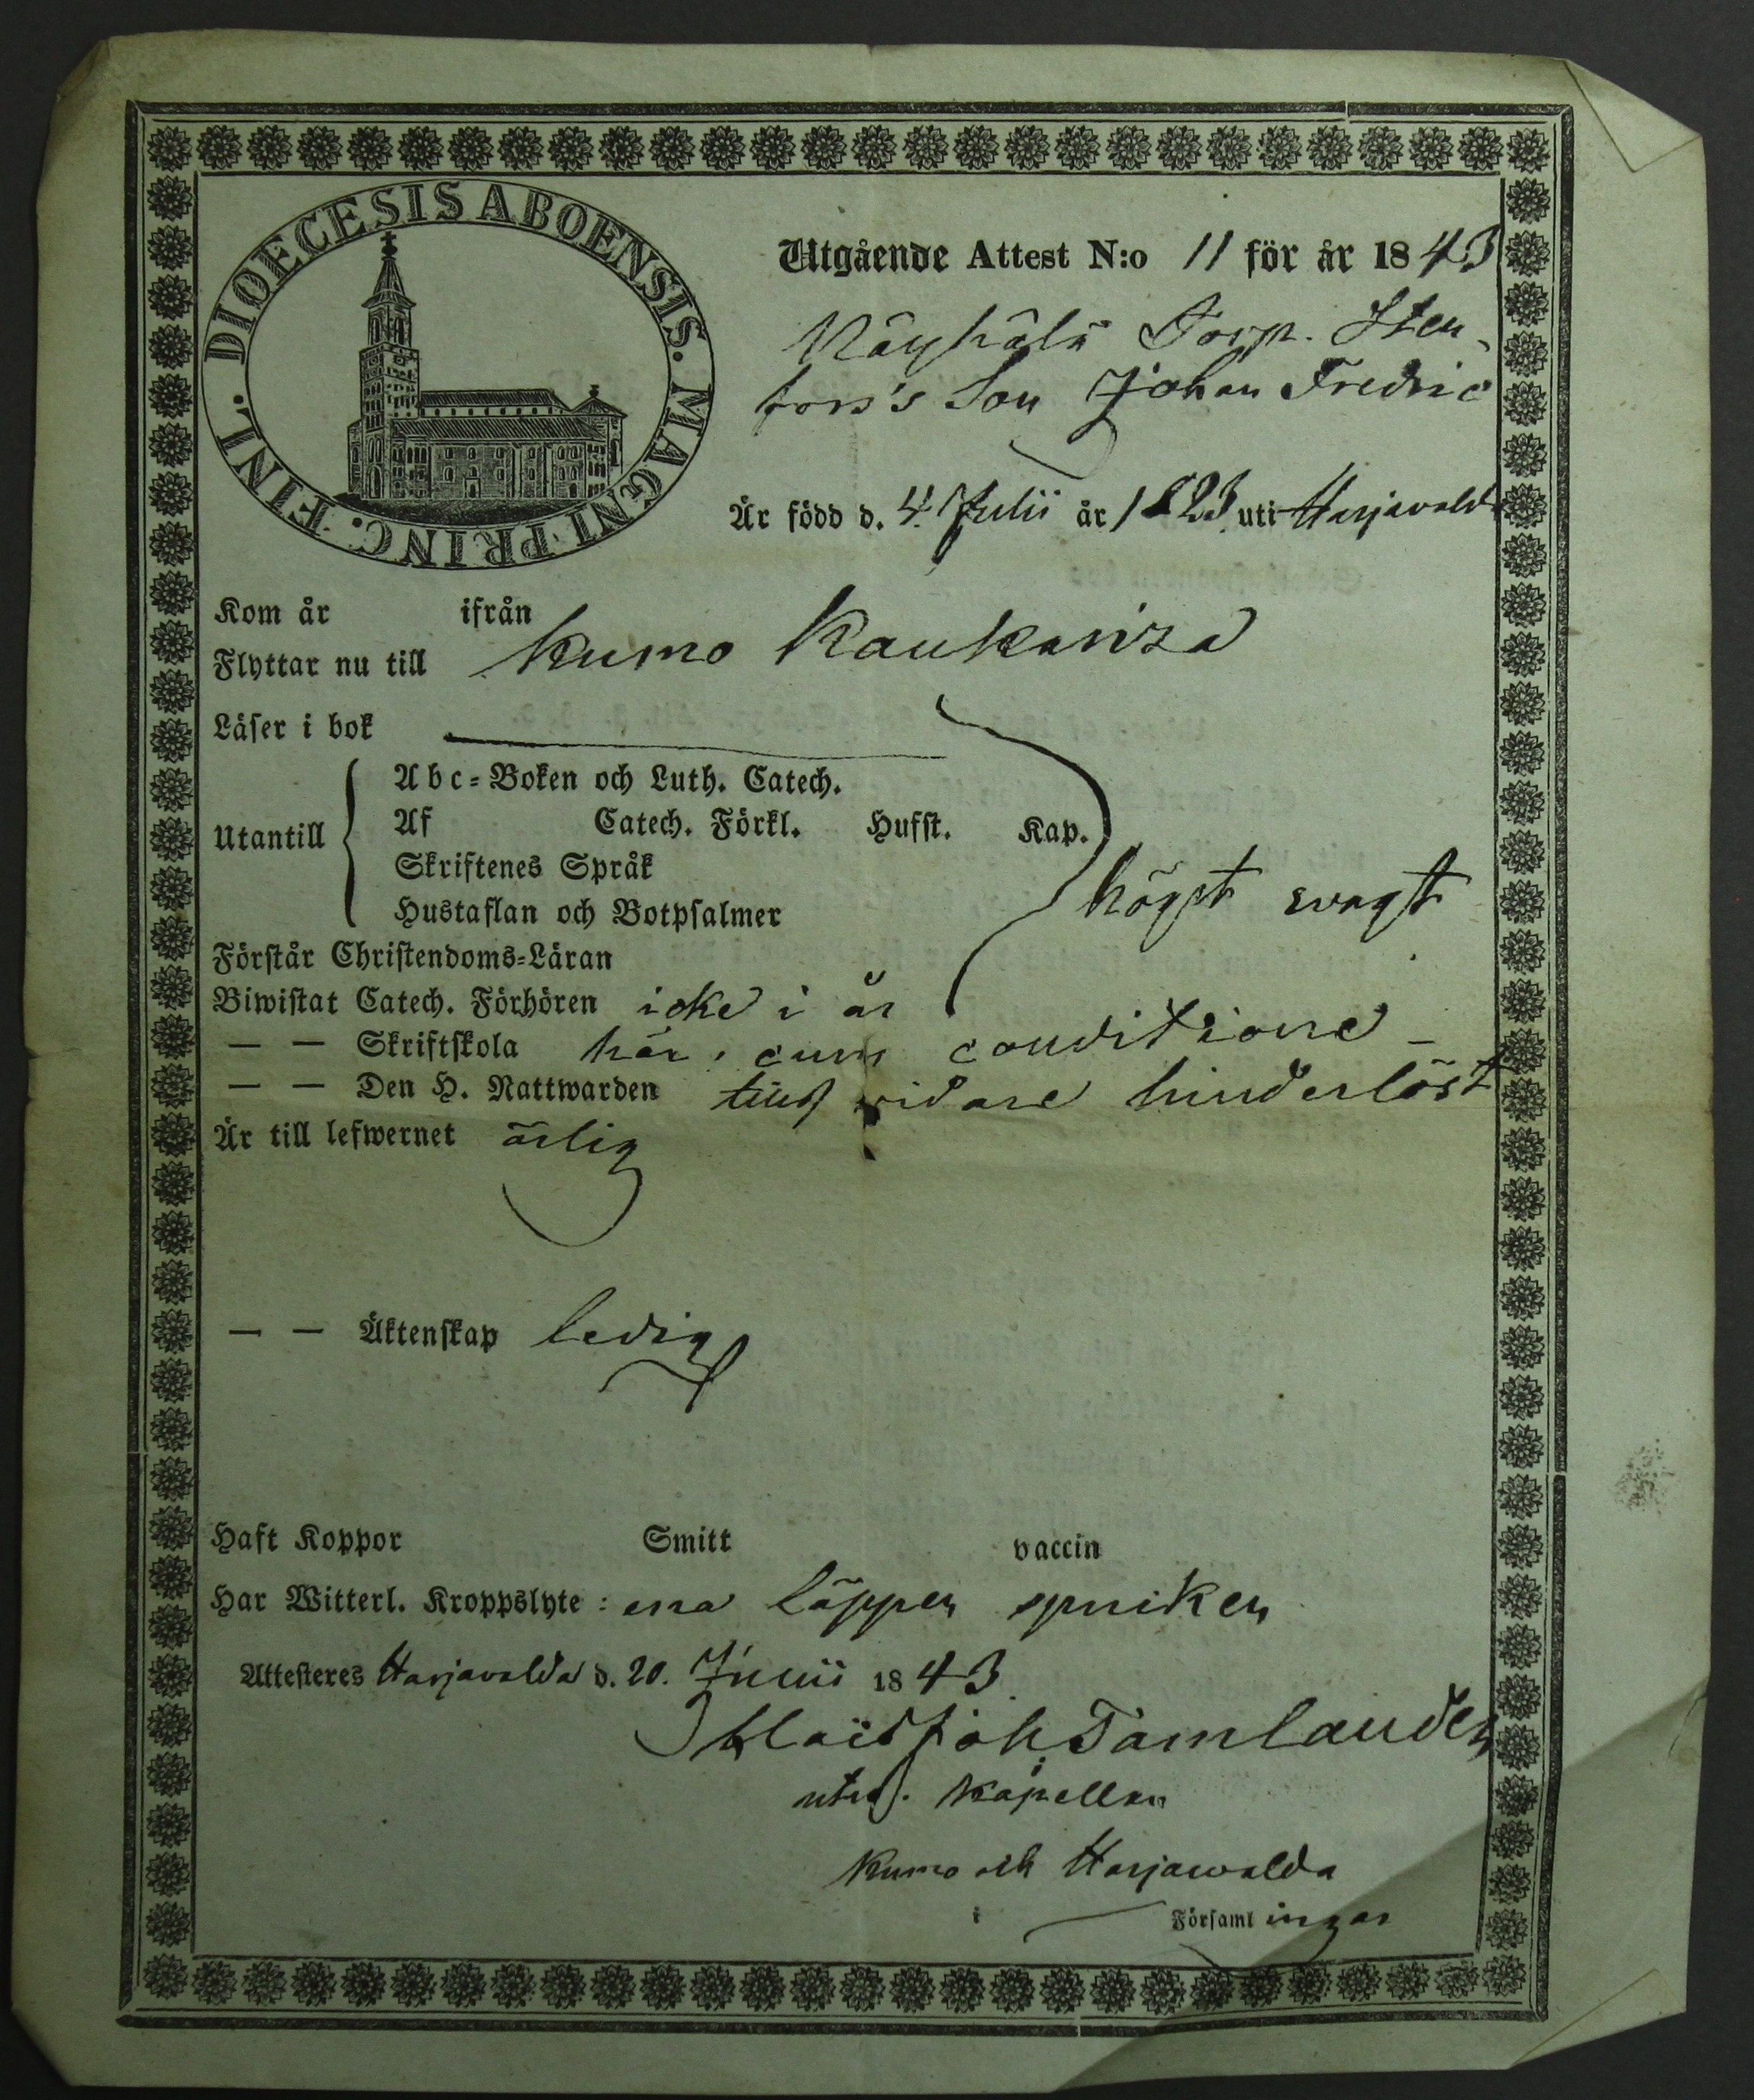 DIOECESIS ABOENSIS. MAGNI PRINC. FINL.
Utgående Attest N:o 11 för år 1843
Näyhälä Torp. Sten-
fors's Son Johan Fredric
Är född d. 4. Julii år 1823 uti Harjavalda
Kom år ifrån
Flyttar nu till Kumo Kaukarisa
Läser i bok
Utantill
Abc-Boken och Luth. Catech.
Af Catech. Förkl. Hufst. Kap.
Skriftenes Språk
Hustaflan och Botpsalmer
högst svagt
Förstår Christendoms-Läran
Biwistat Catech. Förhören icke i år
— — Skriftskola här, cum conditione
— — Den H. Nattwarden vidare hinderlöst
Är till lefwernet ärlig
— — Äktenskap ledig
Haft Koppor Smitt vaccin
Har Witterl. Kroppslyte: ena läppen spruken
Attesteres Harjavalda d. 20. Junii 1843.
Joh Tamlander
Kapellan
Kumo och Harjawalda
i Församlingar